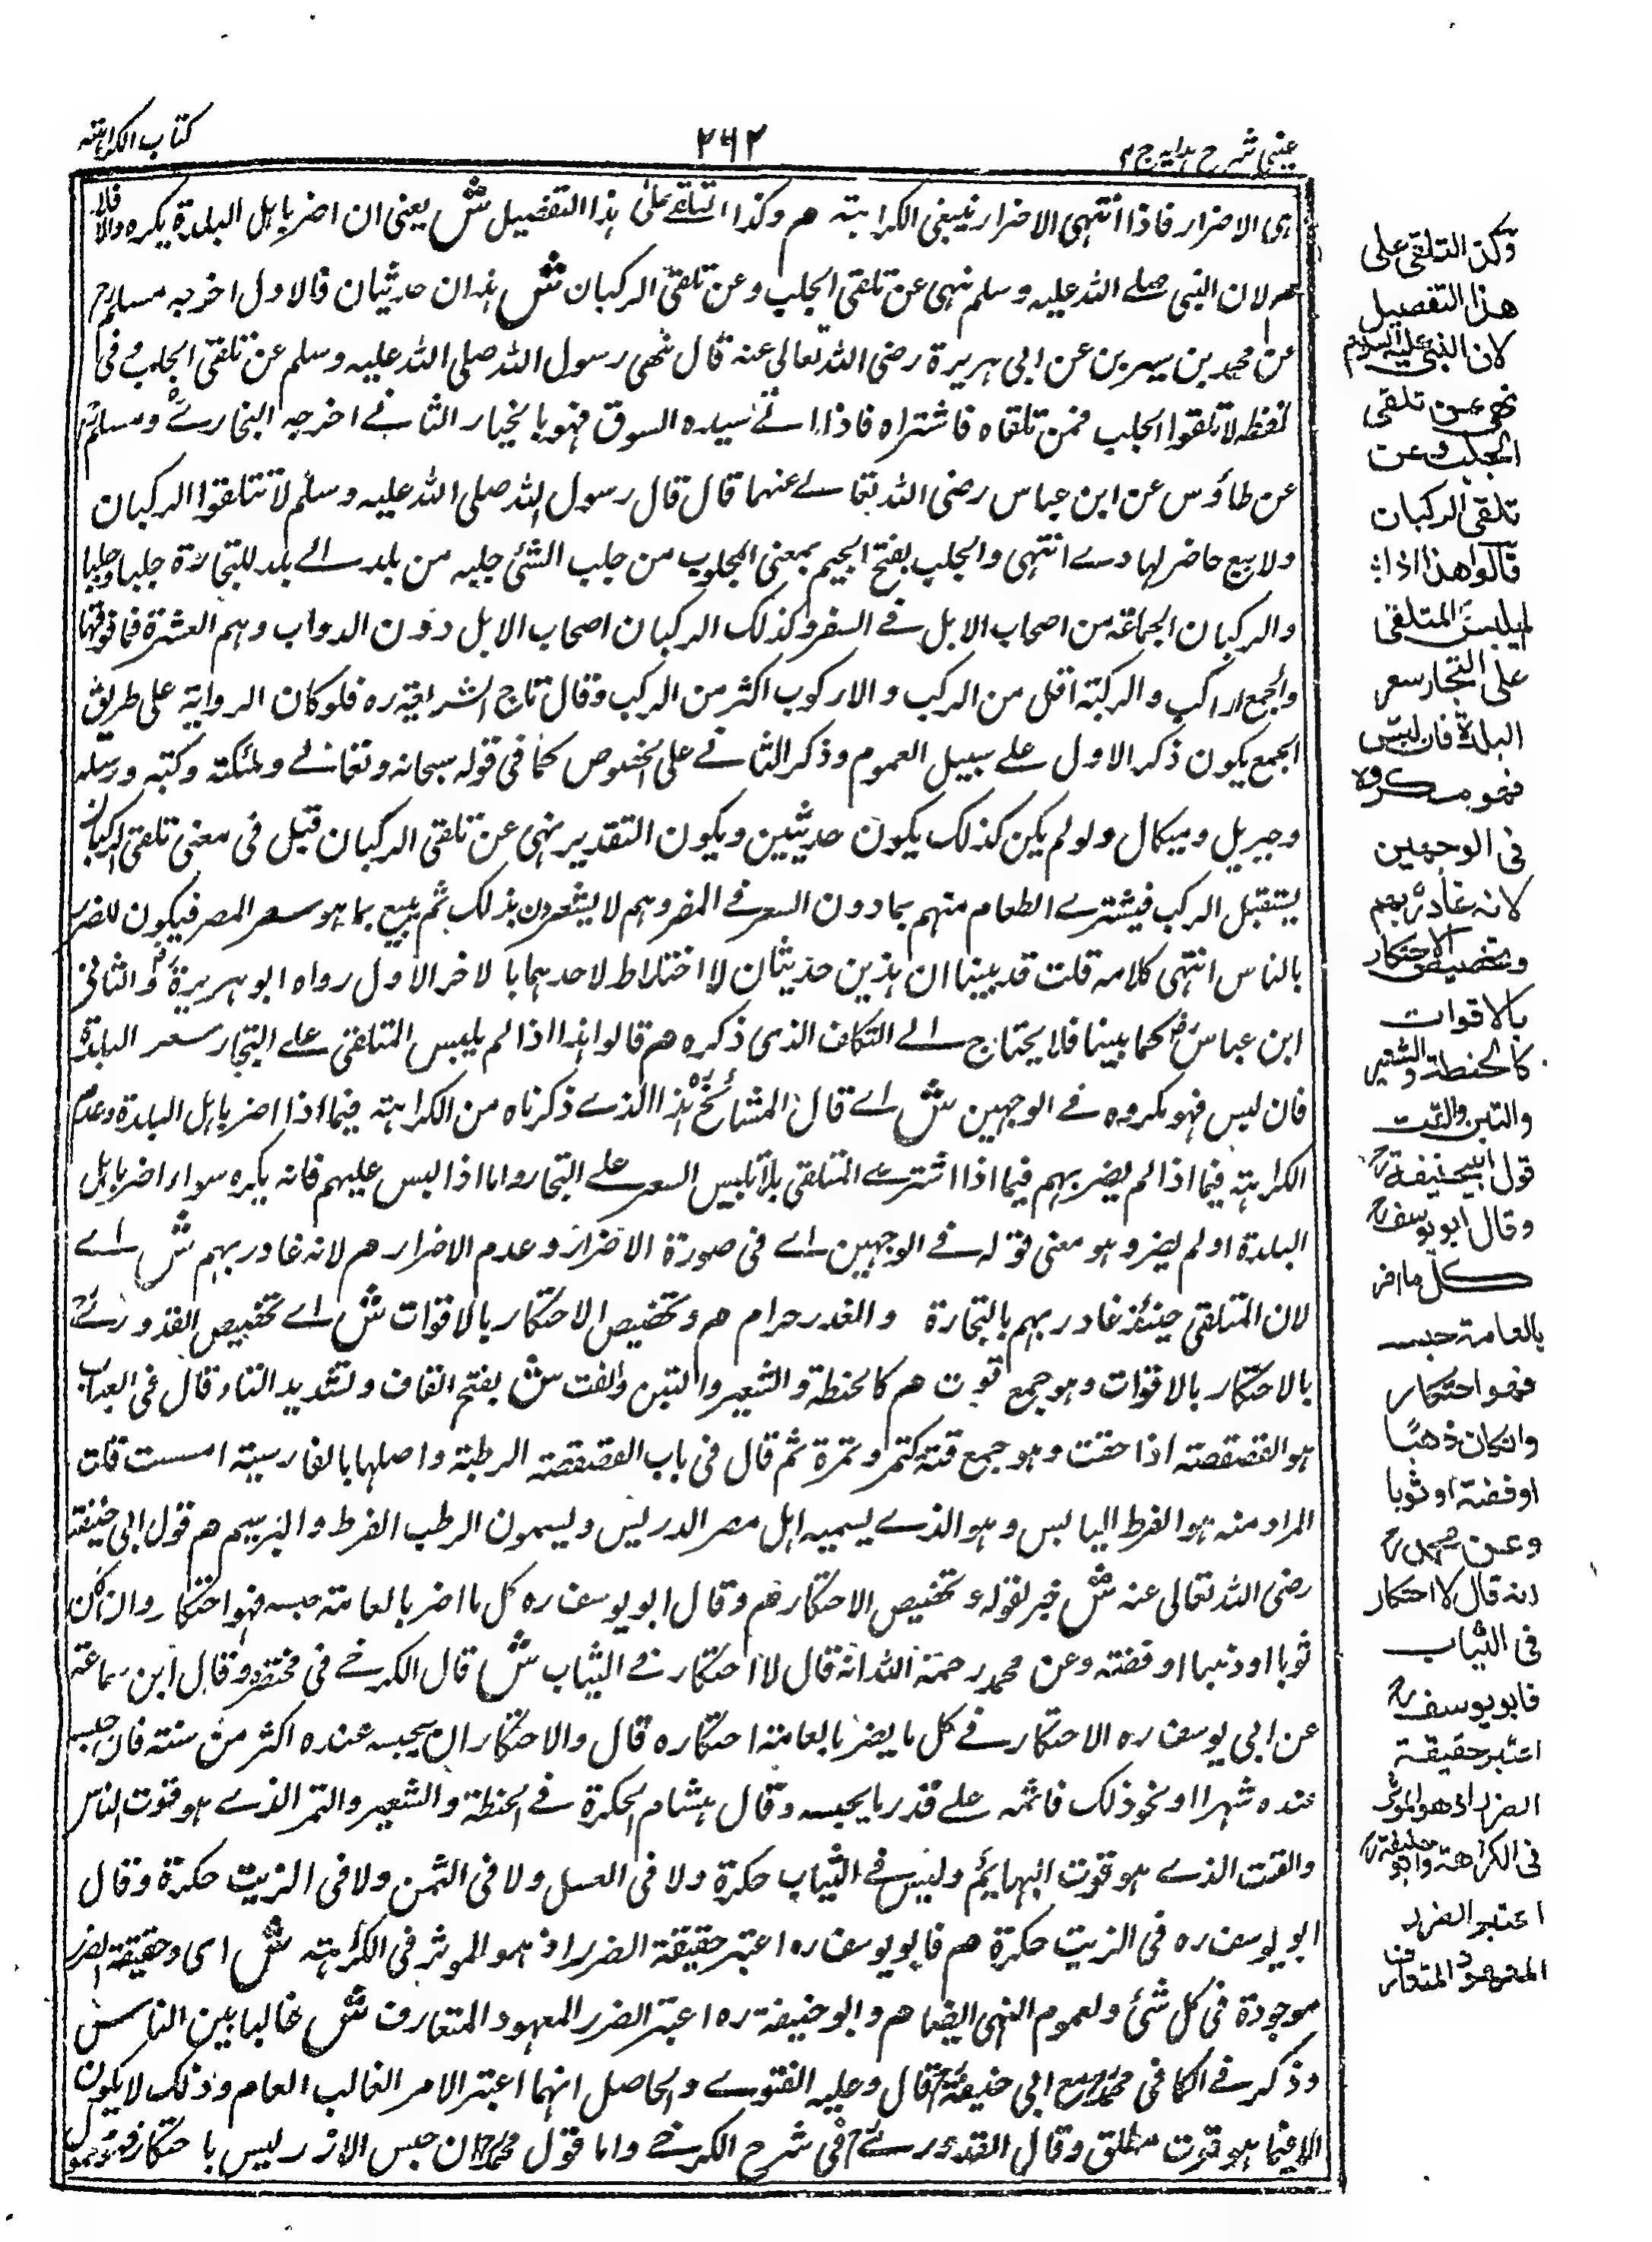 عینی شرح ہدایہ ج ۴
۲۶۲
کتاب الکراہتہ
ہی الاضرار فاذا انتہی الاضرار ینبغی الکراہتہ ھم وکذا التلقے علی ہذا التفصیل ش یعنی ان اضر باہل البلدة یکرہ والا فلا
ھم لان النبی صلے اللہ علیہ وسلم نہی عن تلقی الجلب وعن تلقی الرکبان ش ہذان حدیثان فالاول اخرجہ مسلم
عن محمد بن سیرین عن ابی ہریرة رضی اللہ تعالی عنہ قال نھی رسول اللہ صلی اللہ علیہ وسلم عن تلقی الجلب وفی
لفظہ لا تلقوا الجلب فمن تلقاہ فاشتراہ فاذا اتے سیدہ السوق فہو بالخیار الثانے اخرجہ البخارے ومسلم
عن طاؤس عن ابن عباس رضی اللہ تعالے عنہما قال قال رسول اللہ صلی اللہ علیہ وسلم لا تتلقوا الرکبان
ولا یبیع حاضر لبادے انتہی والجلب بفتح الجیم بمعنی المجلوب من جلب الشئ جلبہ من بلد الے بلد للتجارة جلبا وجلبا
والرکبان الجماعة من اصحاب الابل فے السفر وکذلک الرکبان اصحاب الابل دون الدواب وہم العشرة فما فوقہا
والجمع اراکب والرکبتہ اقل من الرکب والارکوب اکثر من الرکب وقال تاج الشریعة رہ فلو کان الروایة علی طریق
الجمع یکون ذکر الاول علے سبیل العموم وذکر الثانے علی الخصوص کما فی قولہ سبحانہ وتعالے وملئکتہ وکتبہ ورسلہ
وجبریل ومیکال ولو لم یکن کذلک یکون حدیثین ویکون التقدیر نہی عن تلقی الرکبان قیل فی معنی تلقی الرکبان
یستقبل الرکب فیشترے الطعام منہم بما دون السعر فے المصر وہم لا یشعرون بذلک ثم یبیع بما ہو سعر المصر فیکون للضرر
بالناس انتہی کلامہ قلت قد بینا ان ہذین حدیثان لا اختلاط لاحدہما بالاخر الاول رواہ ابو ہریرة والثانی
ابن عباس کما بینا فلا یحتاج الے التکلف الذی ذکرہ ھم قالوا ہذا اذا لم یلبس المتلقی علے التجار سعر البلدة
فان لبس فہو مکروہ فے الوجہین ش اے قال المشائخ ہذا الذے ذکرناہ من الکراہتہ فیما اذا اضر باہل البلدة وعدم
الکراہتہ فیما اذا لم یضر بہم فیما اذا اشترے المتلقی بلا تلبیس السعر علے التجار واما اذا لبس علیہم فانہ یکرہ سواء اضر باہل
البلدة او لم یضر وہو معنی قولہ فے الوجہین اے فی صورة الاضرار وعدم الاضرار ھم لانہ غادر بہم ش اے
لان المتلقی حینئذ غادر بہم بالتجارة والغدر حرام ھم وتخصیص الاحتکار بالاقوات ش اے تخصیص القدورے
بالاحتکار بالاقوات وہو جمع قوت ھم کالحنطة والشعیر والتبن والقت ش بفتح القاف وتشدید التاء قال فی العباب
ہو الفصفصتہ اذا جفت وہو جمع قتة کتمر وتمرة ثم قال فی باب الفصفصتہ الرطبة واصلہا بالفارسیة امست قلت
المراد منہ ہو القرط الیابس وہو الذے یسمیہ اہل مصر الدریس ویسمون الرطب القرط والبرسیم ھم قول ابی حنیفة
رضی اللہ تعالی عنہ ش خبر لقولہ وتخصیص الاحتکار ھم وقال ابو یوسف رہ کل ما اضر بالعامتہ حبسہ فہو احتکار وان کان
ثوبا او ذہبا او فضتہ وعن محمد رحمة اللہ انہ قال لا احتکار فے الثیاب ش قال الکرخے فی مختصرہ وقال ابن سماعتہ
عن ابی یوسف رہ الاحتکار فے کل ما یضر بالعامتہ احتکارہ قال والاحتکار ان یحبسہ عندہ اکثر من سنتہ فان حبسہ
عندہ شہرا او نحو ذلک فاثمہ علے قدر ما یحبسہ وقال ہشام الحکرة فے الحنطة والشعیر والتمر الذے ہو قوت الناس
والقت الذے ہو قوت البہایم ولیس فے الثیاب حکرة ولا فی العسل ولا فی السمن ولا فی الزیت حکرة وقال
ابو یوسف رہ فی الزیت حکرة ھم فابو یوسف رہ اعتبر حقیقة الضرر اذ ہو الموثر فی الکراہتہ ش ای وحقیقة الضرر
موجودة فی کل شئ ولعموم النہی ایضا ھم وابو حنیفة رہ اعتبر الضرر المعہود المتعارف ش غالبا بین الناس
وذکر فے الکافی محمد مع ابی حنیفة قال وعلیہ الفتوے والحاصل انہما اعتبر الامر الغالب العام وذلک لا یکون
الا فیما ہو قوت مطلق وقال القدورے فی شرح الکرخے واما قول محمد ان حبس الارز لیس باحتکار فہو
وکذا التلقی علی
ھذا التفصیل
لان النبی علیہ السلام
نھی عن تلقی
الجلب وعن
تلقی الرکبان
قالوا ھذا اذا
لم یلبس المتلقی
علی التجار سعر
البلدة فان لبس
فھو مکروہ
فی الوجھین
لانہ غادر بھم
وتخصیص الاحتکار
بالاقوات
کالحنطة والشعیر
والتبن والقت
قول ابیحنیفة
وقال ابو یوسف
کل ما اضر
بالعامة حبسہ
فھو احتکار
وان کان ذھبًا
او فضة او ثوبا
وعن محمد
انہ قال لا احتکار
فی الثیاب
فابو یوسف
اعتبر حقیقة
الضرر اذ ھو الموثر
فی الکراھة وابو حنیفة
اعتبر الضرر
المعھود المتعارف